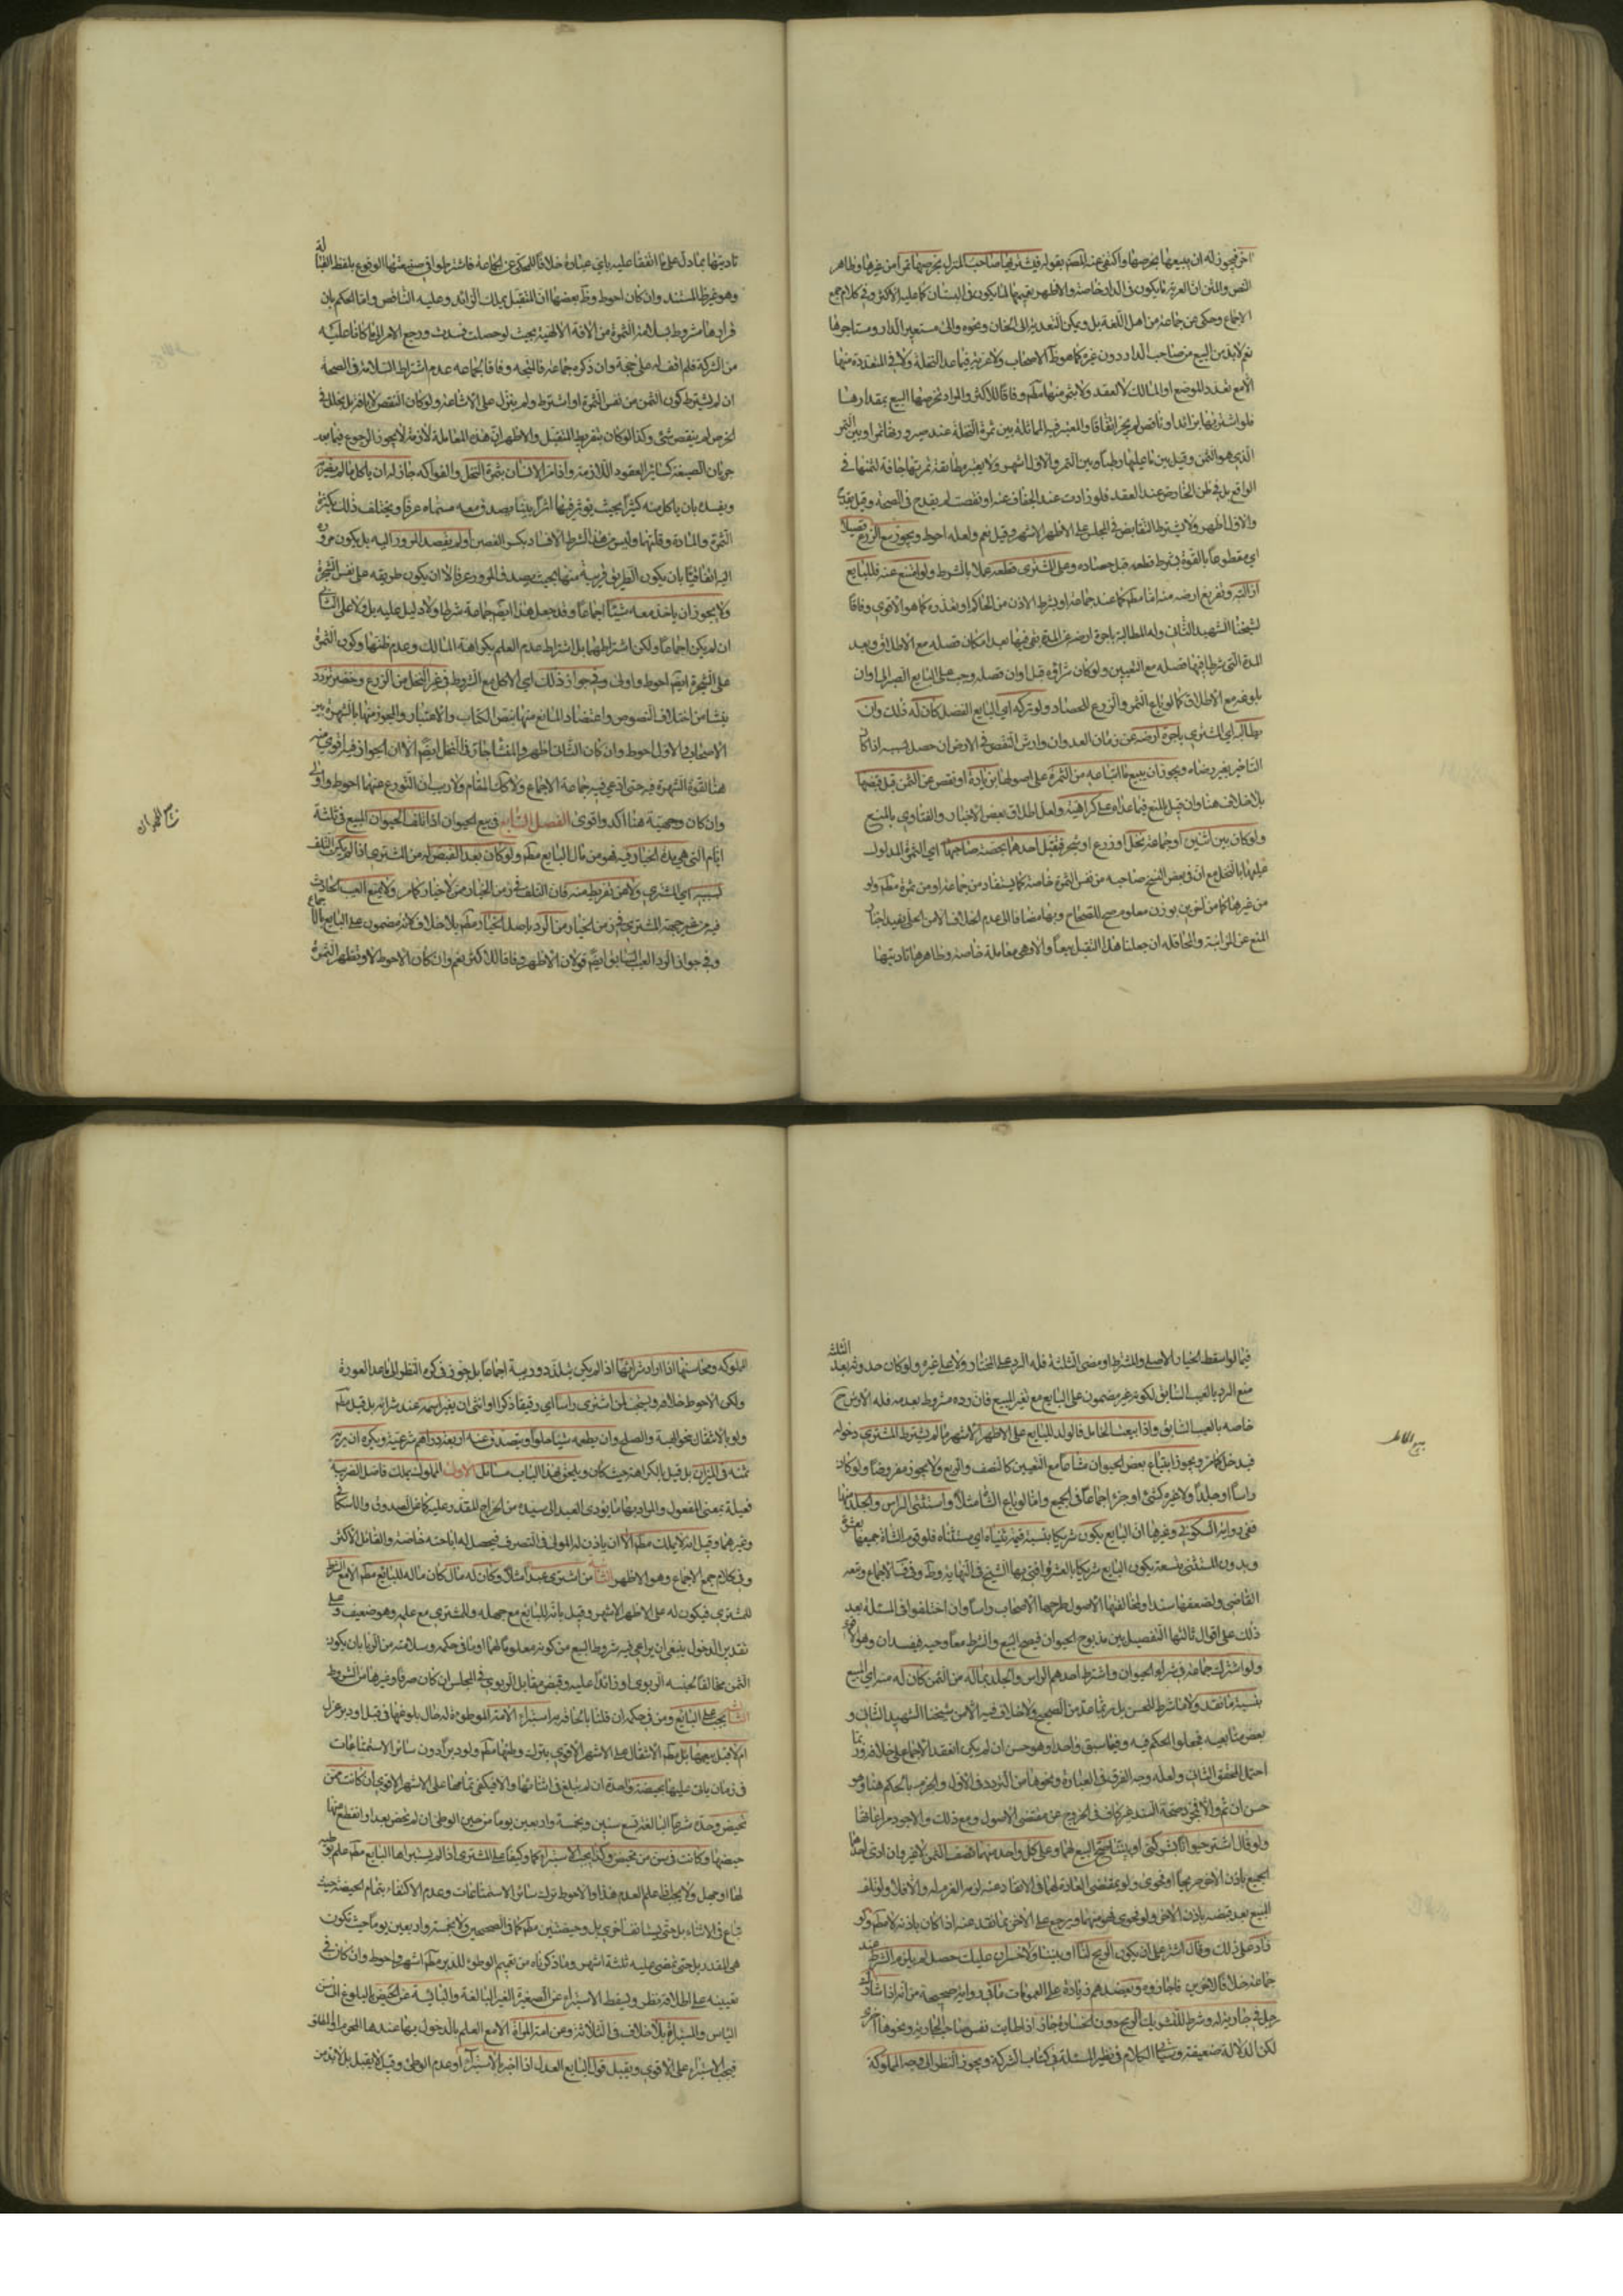 اخر فيجوز له ان يبيعها بخرصها واكتفى عنه المصنف بقوله فيشتريها صاحب المنزل بخرصها تمرا من غيرها وظاهر
النص والمتن ان العرية ما يكون في الدار خاصة والاظهر تعميمها لما يكون في البستان كما عليه الاكثر وفي كلام جمع
الاجماع وحكى عن جماعة من اهل اللغة بل ويمكن التعدية الى الخان ونحوه والى مستعير الدار ومستاجرها
نعم لابد من البيع من صاحب الدار دون غيره كما هو ظاهر الاصحاب ولا عرية فيما عدا النخلة ولا في المتعددة منها
الا مع تعدد الموضع او المالك لا العقد ولا بثمر منها مطم وفاقا للاكثر والمراد بخرصها البيع بمقدارها
فلو اشتريها بزائد او ناقص لم يجز اتفاقا والمعتبر فيه المماثلة بين ثمرة النخلة عند صيرورتها تمرا وبين التمر
الذي هو الثمن وقيل بين ما عليها رطبا وبين التمر والاول اشهر ولا يعتبر مطابقة ثمرتها جافة لثمنها في
الواقع بل في ظن الخارص عند العقد فلو زادت عند الجفاف عنه او نقصت لم يقدح في الصحة وقيل يقدح
والاول اظهر ولا يشترط التقابض في المجلس على الاظهر الاشهر وقيل نعم ولعله احوط ويجوز بيع الزرع قصيلا
اي مقطوعا بالقوة بشرط قطعه قبل حصاده وعلى المشتري قطعه عملا بالشرط ولو امتنع عنه فللبايع
ازالته وتفريغ ارضه منه اما مطم كما عند جماعة او بشرط الاذن من الحاكم او تعذره كما هو الاقوى وفاقا
لشيخنا الشهيد الثاني وله المطالبة باجرة ارضه عن المدة بقي فيها بعد امكان فصله مع الاطلاق وبعد
المدة التي شرطا فيها فصله مع التعيين ولو كان شراؤه قبل اوان فصله وجب على البايع الصبر الى اوان
بلوغه مع الاطلاق كما لو باع الثمر والزرع للحصاد ولو تركه اي البايع الفصل كان له ذلك وان
يطالبه اي المشتري باجرة ارضه عن زمان العدوان وارش النقص في الارض ان حصل بسببه اذا كان
التاخير بغير رضاه ويجوز ان يبيع ما ابتاعه من الثمرة على اصولها بزيادة او نقص عن الثمن قبل قبضها
بلا خلاف هنا وان قيل بالمنع فيما عداه على كراهية ولعل اطلاق بعض الاخبار والفتاوي بالمنع
ولو كان بين اثنين او جماعة نخل او زرع او شجر فتقبل احدهما بحصة صاحبها اي الثمرة المدلول
عليها بالنخل مع ان في بعض النسخ صاحبه من نفس الثمرة خاصة كما يستفاد من جماعة او من ثمرة مطم ولو
من غيرها كما من اخرين بوزن معلوم صح للصحاح وبها مضافا الى عدم الخلاف الا من الحلي يقيد اخبار
المنع عن المزابنة والمحاقلة ان جعلنا هذا التقبل بيعا والا فهي معاملة خاصة وظاهرها تاديتها
تاديتها بما دل على ما اتفقا عليه باي عبارة خلافا للمحكي عن الجماعة فاشترطوا في صيغتها الوقوع بلفظ القبالة
وهو غير ظاهر المستند وان كان احوط وظاهر بعضها ان المتقبل يملك الزائد وعليه الناقص واما الحكم بان
قرارها مشروط بسلامة الثمرة من الافة الالهية بحيث لو حصلت فسدت ورجع الامر الى ما كانا عليه
من الشركة فلم اقف له على حجة وان ذكره جماعة فالمتجه وفاقا لجماعة عدم اشتراط السلامة في الصحة
ان لم يشترط كون الثمن من نفس الثمرة او اشترط ولم ينزل على الاشاعة ولو كان النقص لا بافة بل بخلل في
الخرص لم ينقص شئ وكذا لو كان بتفريط المتقبل والاظهر ان هذه المعاملة لازمة لا يجوز الرجوع فيها بعد
جريان الصيغة كسائر العقود اللازمة واذا مر الانسان بثمرة النخل والفواكه جاز له ان ياكل ما لم يضر
ويفسد بان ياكل منه كثيرا بحيث يؤثر فيها اثرا بينا يصدق معه مسماه عرفا ويختلف ذلك بكثرة
الثمرة والمارة وقلتها وليس من هذا الشرط الافساد بكسر الغصن او لم يقصد المرور اليه بل يكون مروره
اليه اتفاقيا بان يكون الطريق قريبة منها بحيث يصدق المرور عرفا لا ان يكون طريقه على نفس الشجرة
ولا يجوز ان ياخذ معه شيئا اجماعا وقد جعل هذا ايضم جماعة شرطا ولا دليل عليه بل ولا على الثاني
ان لم يكن اجماعا ولكن اشتراطهما بل اشتراط عدم العلم بكراهة المالك وعدم ظنها وكون الثمرة
على الشجرة ايضم احوط واولى وفي جواز ذلك اي الاكل مع الشروط في غير النخل من الزرع وخضر تردد
ينشا من اختلاف النصوص واعتضاد المانع منها بنص الكتاب والاعتبار والمجوز منها بالشهرة بين
الاصحاب والاول احوط وان كان الثاني اظهر والمنشا جار في النخل ايضا الا ان الجواز فيه اقوى منه
هنا لقوة الشهرة فيه حتى ادعي فيه جماعة الاجماع ولا كك المقام ولا ريب ان التورع عنهما احوط واولى
وان كان وجهيته هنا اكد واقوى الفصل السابع في بيع الحيوان اذا تلف الحيوان المبيع في ثلثة
ايام التي هي مدة الخيار فيه فهو من مال البايع مطم ولو كان بعد القبض له من المشتري اذا لم يكن التلف
بسببه اي المشتري ولا عن تفريط منه فان التلف في زمن الخيار ممن لا خيار له كما مر ولا يمنع العيب الحادث
فيه من غير جهة المشتري في زمن الخيار من الرد باصل الخيار مطم بلا خلاف لانه مضمون على البايع بالاجماع
وفي جواز الرد بالعيب السابق ايضم قولان الاظهر وفاقا للاكثر نعم وان كان الاحوط لا وتظهر الثمرة
فيما لو اسقط الخيار الاصلي والمشترط او مضى الثلثة فله الرد على المختار ولا على غيره ولو كان حدوثه بعد الثلثة
منع الرد بالعيب السابق لكونه غير مضمون على البايع مع تغير المبيع فان رده مشروط بعدمه فله الارش ح
خاصه بالعيب السابق واذا بيعت الحامل فالولد للبايع على الاظهر الاشهر ما لم يشترط المشتري دخوله
فيدخل كما مر ويجوز ابتياع بعض الحيوان مشاعا مع التعيين كالنصف والربع ولا يجوز مفروضا ولو كان
راسا او جلدا ولا غيره كشئ او جزء اجماعا في الجميع واما لو باع الشاة مثلا واستثنى الراس والجلد منها
ففي رواية السكوني وغيرها ان البايع يكون شريكا بنسبة قيمة ثنياه اي مستثناه فلو قوم الشاة جميعها بعشرة
وبدون المستثنى بتسعة يكون البايع شريكا بالعشر وافتى بها الشيخ في النهاية وط وف وفيه الاجماع وتبعه
القاضي ولضعفها سندا ومخالفتها الاصول طرحها الاصحاب راسا وان اختلفوا في المسئلة بعد
ذلك على اقوال ثالثها التفصيل بين مذبوح الحيوان فيصح البيع والشرط معا وحيه فيفسدان وهو الاقوى
ولو اشترك جماعة في شراء الحيوان واشترط احدهم الراس والجلد بماله من الثمن كان له منه اي المبيع
بنسبة ما نقد ولا ما شرط للحسن بل ربما عد من الصحيح ولا خلاف فيه الا من شيخنا الشهيد الثاني و
بعض متابعيه فجعلوا الحكم فيه وفيما سبق واحدا وهو حسن ان لم يكن انعقد الاجماع على خلافه وربما
احتمل المحقق الثاني ولعله وجه الفرق في العبارة ونحوها من التردد في الاول والجزم بالحكم هنا وهو
حسن ان تم والا فمجرد صحة السند غير كاف في الخروج عن مقتضى الاصول ومع ذلك والاجود مراعاتها
ولو قال اشتر حيوانا بشركتي او بيننا صح البيع لهما وعلى كل واحد منهما نصف الثمن لا غير وان ادى احدهما
الجميع باذن الاخر صريحا او فحوى ولو بمقتضى العادة لهما في الانقاد عنه لزمه الغرم له والا فلا ولو تلف
المبيع بعد قبضه باذن الاخر ولو فحوى فهو منهما ويرجع على الاخر بما نقد عنه اذا كان باذنه لا مطم ولو
زاد على ذلك وقال اشتر على ان يكون الربح لنا او بيننا ولا خسران عليك حصل لم يلزم الشرط عند
جماعة خلافا لاخرين فاجازوه ويعضدهم زيادة على العمومات ما في رواية صحيحة من انه اذا شارك
رجل في جارية له وشرط للشريك الربح دون الخسارة جاز اذا طابت نفس صاحب الجارية ونحوها اخرى
لكن الدلالة ضعيفة وسيأتي الكلام في نظير المسئلة في كتاب الشركة ويجوز النظر الى وجه المملوكة
المملوكه ومحاسنها اذا اراد شرائها اذا لم يكن بتلذذ وريبة اجماعا بل جوز في كره النظر الى ما عدا العورة
ولكن الاحوط خلافه ويستحب لمن اشترى راسا اي رقيقا ذكرا او انثى ان يغير اسمه عند شرائه بل قيل مطم
ولو بالانتقال بنحو الهبة والصلح وان يطعمه شيئا حلوا ويتصدق عنه اربعة دراهم شرعية ويكره ان يريه
ثمنه في الميزان بل قيل بالكراهة حيث كان ويلحق بهذا الباب مسائل الاولى المملوك يملك فاضل الضريبة
فعيلة بمعنى المفعول والمراد بها ما يؤدى العبد الى سيده من الخراج المقدر عليه كما عن الصدوق والاسكافي
وغيرهما وقيل انه لا يملك مطم الا ان ياذن له المولى في التصرف فيحصل له اباحته خاصة والقائل الاكثر
وفي كلام جمع الاجماع وهو الاظهر الثانية من اشترى عبدا مثلا وكان له مال كان ماله للبايع مطم الا مع الشرط
للمشتري فيكون له على الاظهر الاشهر وقيل بانه للبايع مع جهله وللمشتري مع علمه وهو ضعيف وعلى
تقدير الدخول ينبغي ان يراعى فيه شروط البيع من كونه معلوما لهما او ما في حكمه وسلامته من الربا بان يكون
الثمن مخالفا لجنسه الربوي او زائدا عليه وقبض مقابل الربوي في المجلس ان كان صرفا وغيرها من الشروط
الثالثة يجب على البايع ومن في حكمه ان قلنا بالحاقه به استبراء الامة الموطوءة له حال بلوغها في قبل او دبر عزل
ام لا قبل بيعها بل مطم الانتقال على الاشهر الاقوى بترك وطئها مطم ولو دبرا دون سائر الاستمتاعات
في زمان ياتي عليها بحيضة واحدة ان لم تبلغ في اثنائها والا فيكفي تمامها على الاشهر الاقوى ان كانت ممن
تحيض وحده شرعا البالغة تسع سنين وبخمسة واربعين يوما من حين الوطئ ان لم تحض بعد او انقطع منها
حيضها وكانت في سن من تحيض وكذا يجب الاستبراء كما وكيفا على المشتري اذا لم يستبراها البايع مطم علم وطيه
لها او جهل ولا يجب مع علم العدم هذا والاحوط ترك سائر الاستمتاعات وعدم الاكتفاء بتمام الحيضة حيث
تباع في الاثناء بل حتى يستانف اخرى بل وحيضتين مطم كما في الصحيحين ولا بخمسة واربعين يوما حيث تكون
هي المقدر بل حتى تمضي عليه ثلثة اشهر وما ذكرناه من تعميم الوطئ للدبر مطم اشهر واحوط وان كان في
تعيينه على اطلاقه نظر ويسقط الاستبراء عن الصغيرة الغير البالغة واليائسة عن الحيض بالبلوغ الى سن
الياس والمستبرأة بلا خلاف في الثلاثة وعن امة المراة الا مع العلم بالدخول بها عندها المحرم او المحلل
فيجب الاستبراء على الاقوى ويقبل قول البايع العدل اذا اخبر بالاستبراء او عدم الوطئ وقيل لا يقبل بل لا بد من
بيع الحامل